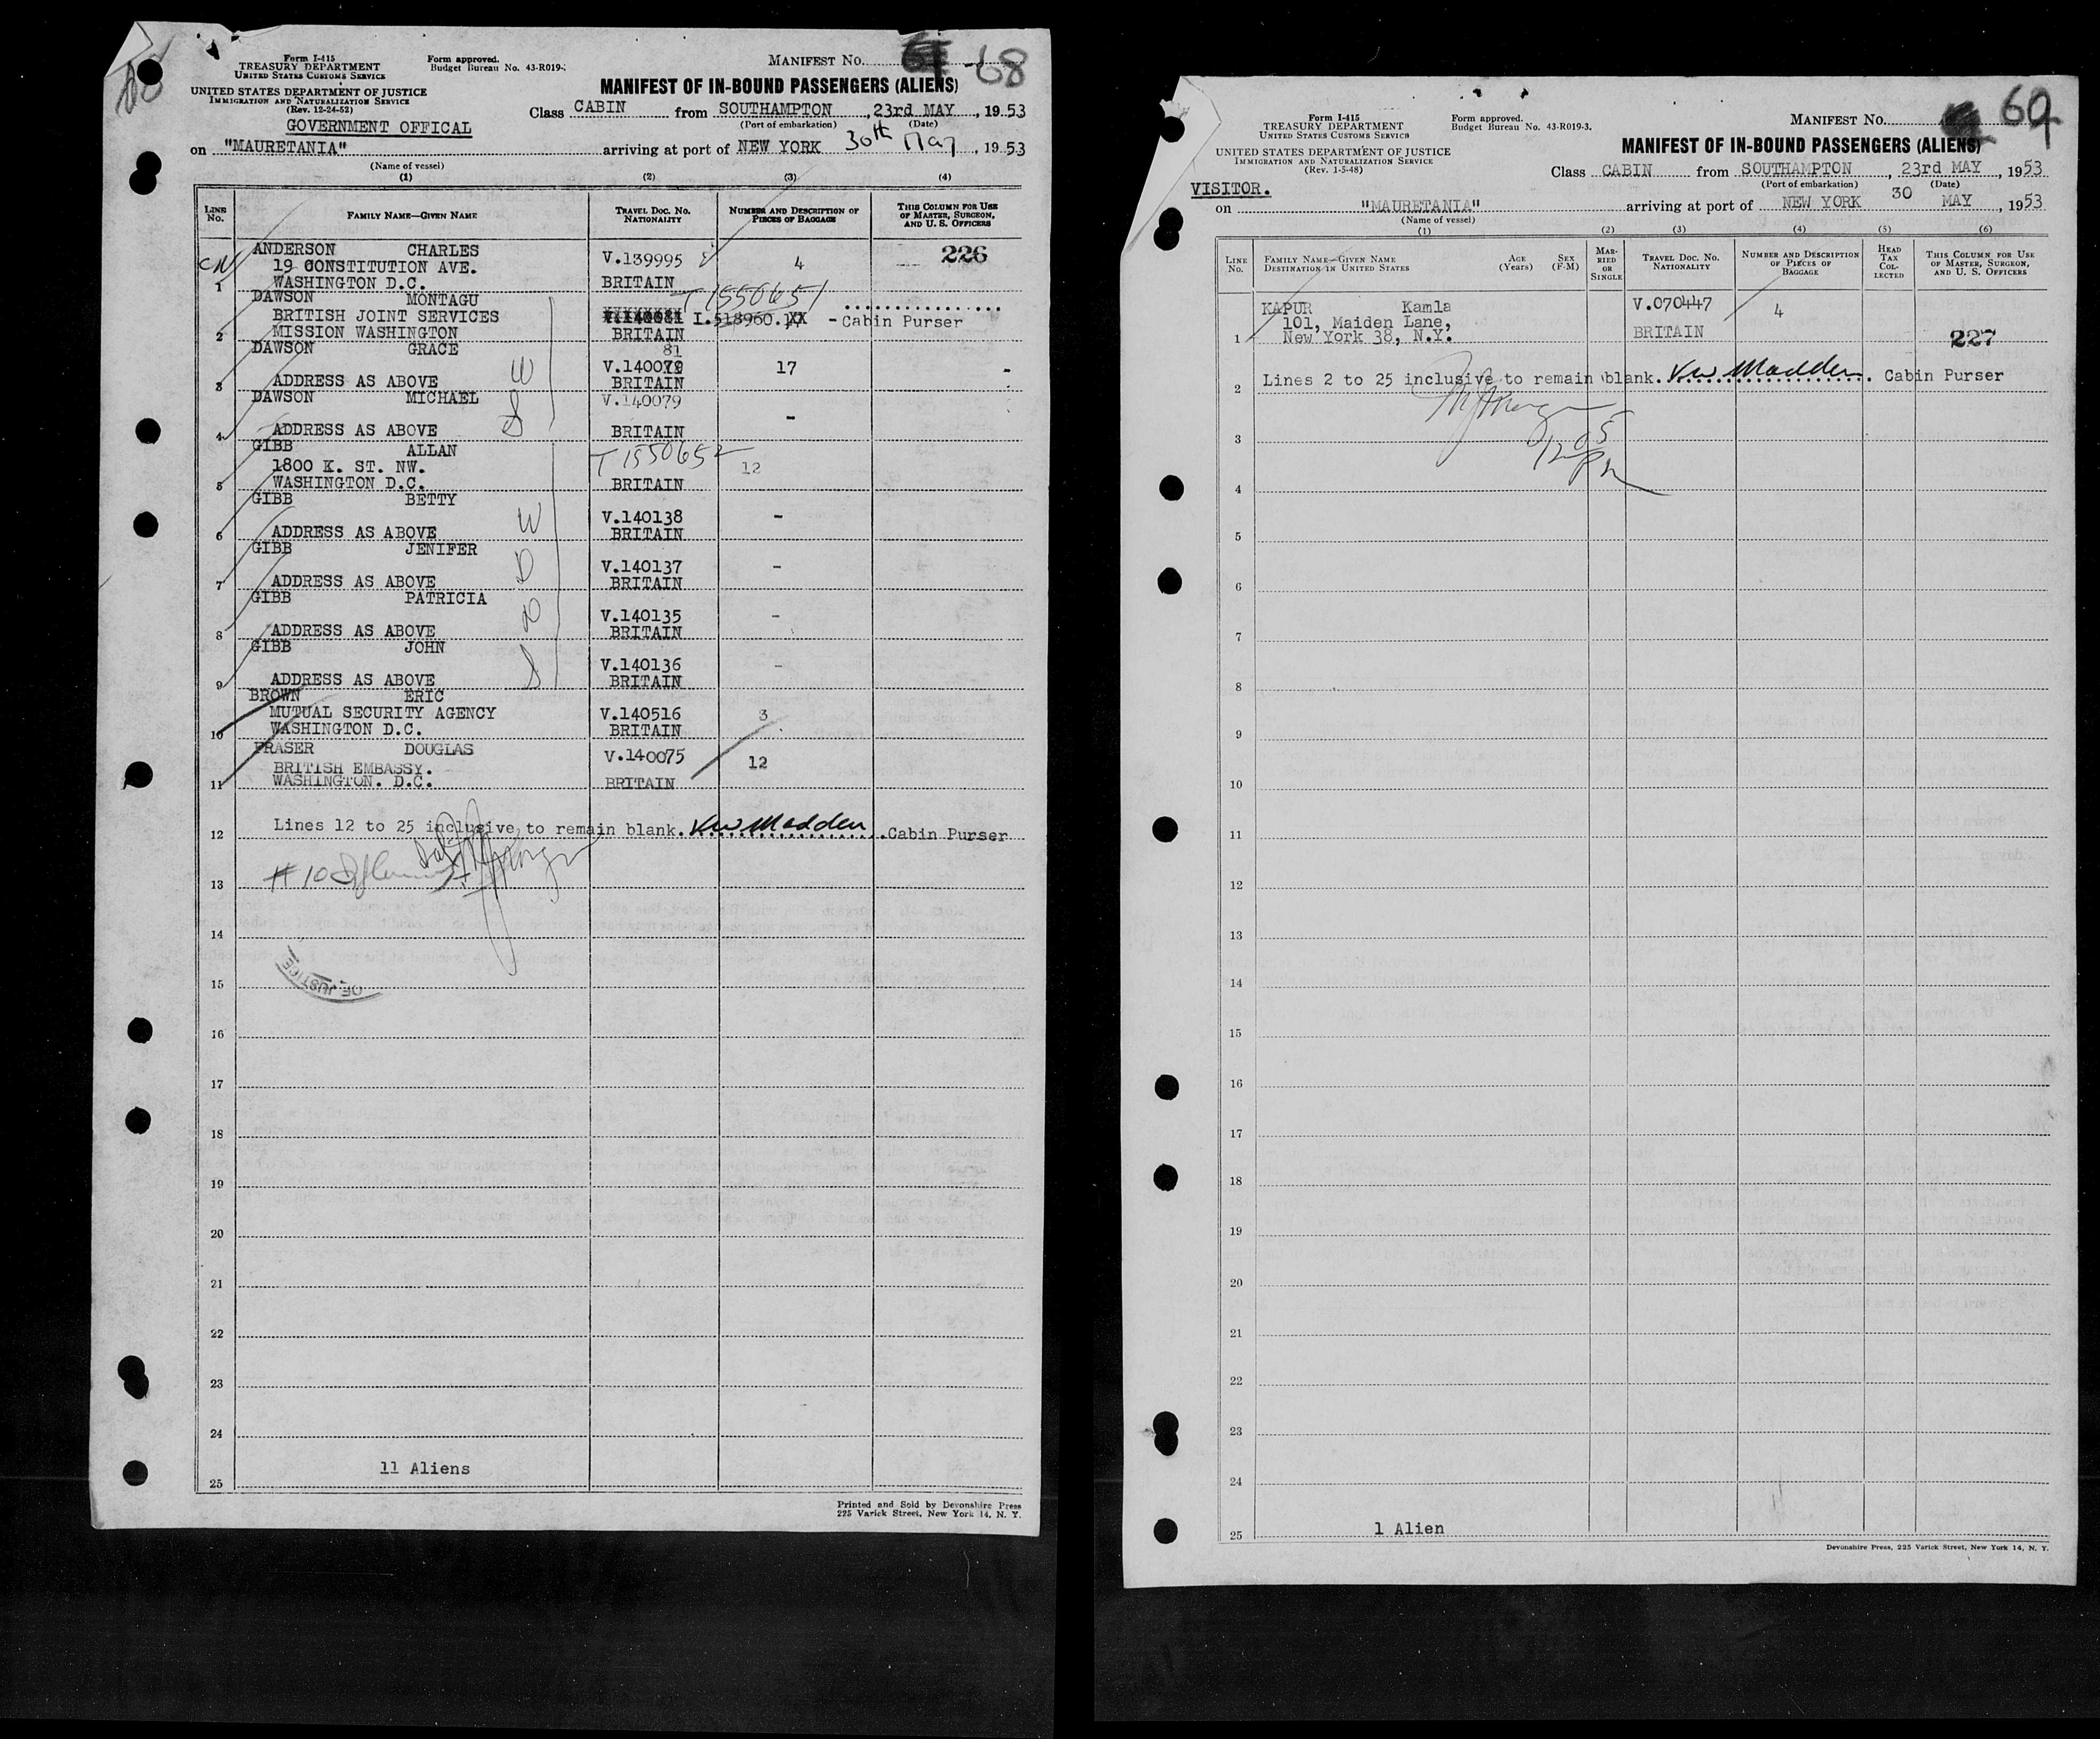 Form I-415
TREASURY DEPARTMENT
UNITED STATES CUSTOMS SERVICE
UNITED STATES DEPARTMENT OF JUSTICE
IMMIGRATION AND NATURALIZATION SERVICE
(Rev. 12-24-52)
Form approved.
Budget Bureau No. 43-R019-
MANIFEST No. 68
MANIFEST OF IN-BOUND PASSENGERS (ALIENS)
GOVERNMENT OFFICAL
Class CABIN from SOUTHAMPTON, 23rd MAY, 1953
(Port of embarkation) (Date)
on "MAURETANIA" arriving at port of NEW YORK 30th May, 1953
(Name of vessel)
(1) (2) (3) (4)
LINE No. FAMILY NAME—GIVEN NAME TRAVEL DOC. NO. NATIONALITY NUMBER AND DESCRIPTION OF PIECES OF BAGGAGE THIS COLUMN FOR USE OF MASTER, SURGEON, AND U. S. OFFICERS
226
ANDERSON CHARLES
19 CONSTITUTION AVE. V.139995 4
1 WASHINGTON D.C. BRITAIN
DAWSON MONTAGU T1550651
BRITISH JOINT SERVICES I.518960. XX - Cabin Purser
2 MISSION WASHINGTON BRITAIN
DAWSON GRACE 81
V.140079 17
3 ADDRESS AS ABOVE W BRITAIN -
DAWSON MICHAEL V.140079
4 ADDRESS AS ABOVE S BRITAIN -
GIBB ALLAN
1800 K. ST. NW. T1550652 12
5 WASHINGTON D.C. BRITAIN
GIBB BETTY
V.140138 -
6 ADDRESS AS ABOVE W BRITAIN
GIBB JENIFER
V.140137 -
7 ADDRESS AS ABOVE D BRITAIN
GIBB PATRICIA
V.140135 -
8 ADDRESS AS ABOVE D BRITAIN
GIBB JOHN
V.140136 -
9 ADDRESS AS ABOVE S BRITAIN
BROWN ERIC
MUTUAL SECURITY AGENCY V.140516 3
10 WASHINGTON D.C. BRITAIN
FRASER DOUGLAS V.140075
BRITISH EMBASSY. 12
11 WASHINGTON. D.C. BRITAIN
12 Lines 12 to 25 inclusive to remain blank. KW Madden Cabin Purser
# 10
13
14
15
OF JUSTICE
16
17
18
19
20
21
22
23
24
11 Aliens
25
Printed and Sold by Devonshire Press
225 Varick Street, New York 14, N. Y.
Form I-415
TREASURY DEPARTMENT
UNITED STATES CUSTOMS SERVICE
UNITED STATES DEPARTMENT OF JUSTICE
IMMIGRATION AND NATURALIZATION SERVICE
(Rev. 1-5-48)
Form approved.
Budget Bureau No. 43-R019-3.
MANIFEST No. 69
MANIFEST OF IN-BOUND PASSENGERS (ALIENS)
Class CABIN from SOUTHAMPTON, 23rd MAY, 1953
(Port of embarkation) (Date)
VISITOR.
on "MAURETANIA" arriving at port of NEW YORK 30 MAY, 1953
(Name of vessel)
(1) (2) (3) (4) (5) (6)
LINE No. FAMILY NAME—GIVEN NAME DESTINATION IN UNITED STATES AGE (Years) SEX (F-M) MARRIED OR SINGLE TRAVEL DOC. NO. NATIONALITY NUMBER AND DESCRIPTION OF PIECES OF BAGGAGE HEAD TAX COLLECTED THIS COLUMN FOR USE OF MASTER, SURGEON, AND U. S. OFFICERS
KAPUR Kamla V.070447 4
101, Maiden Lane,
1 New York 38, N.Y. BRITAIN 227
2 Lines 2 to 25 inclusive to remain blank. KW Madden. Cabin Purser
1205 PM
3
4
5
6
7
8
9
10
11
12
13
14
15
16
17
18
19
20
21
22
23
24
1 Alien
25
Devonshire Press, 225 Varick Street, New York 14, N. Y.